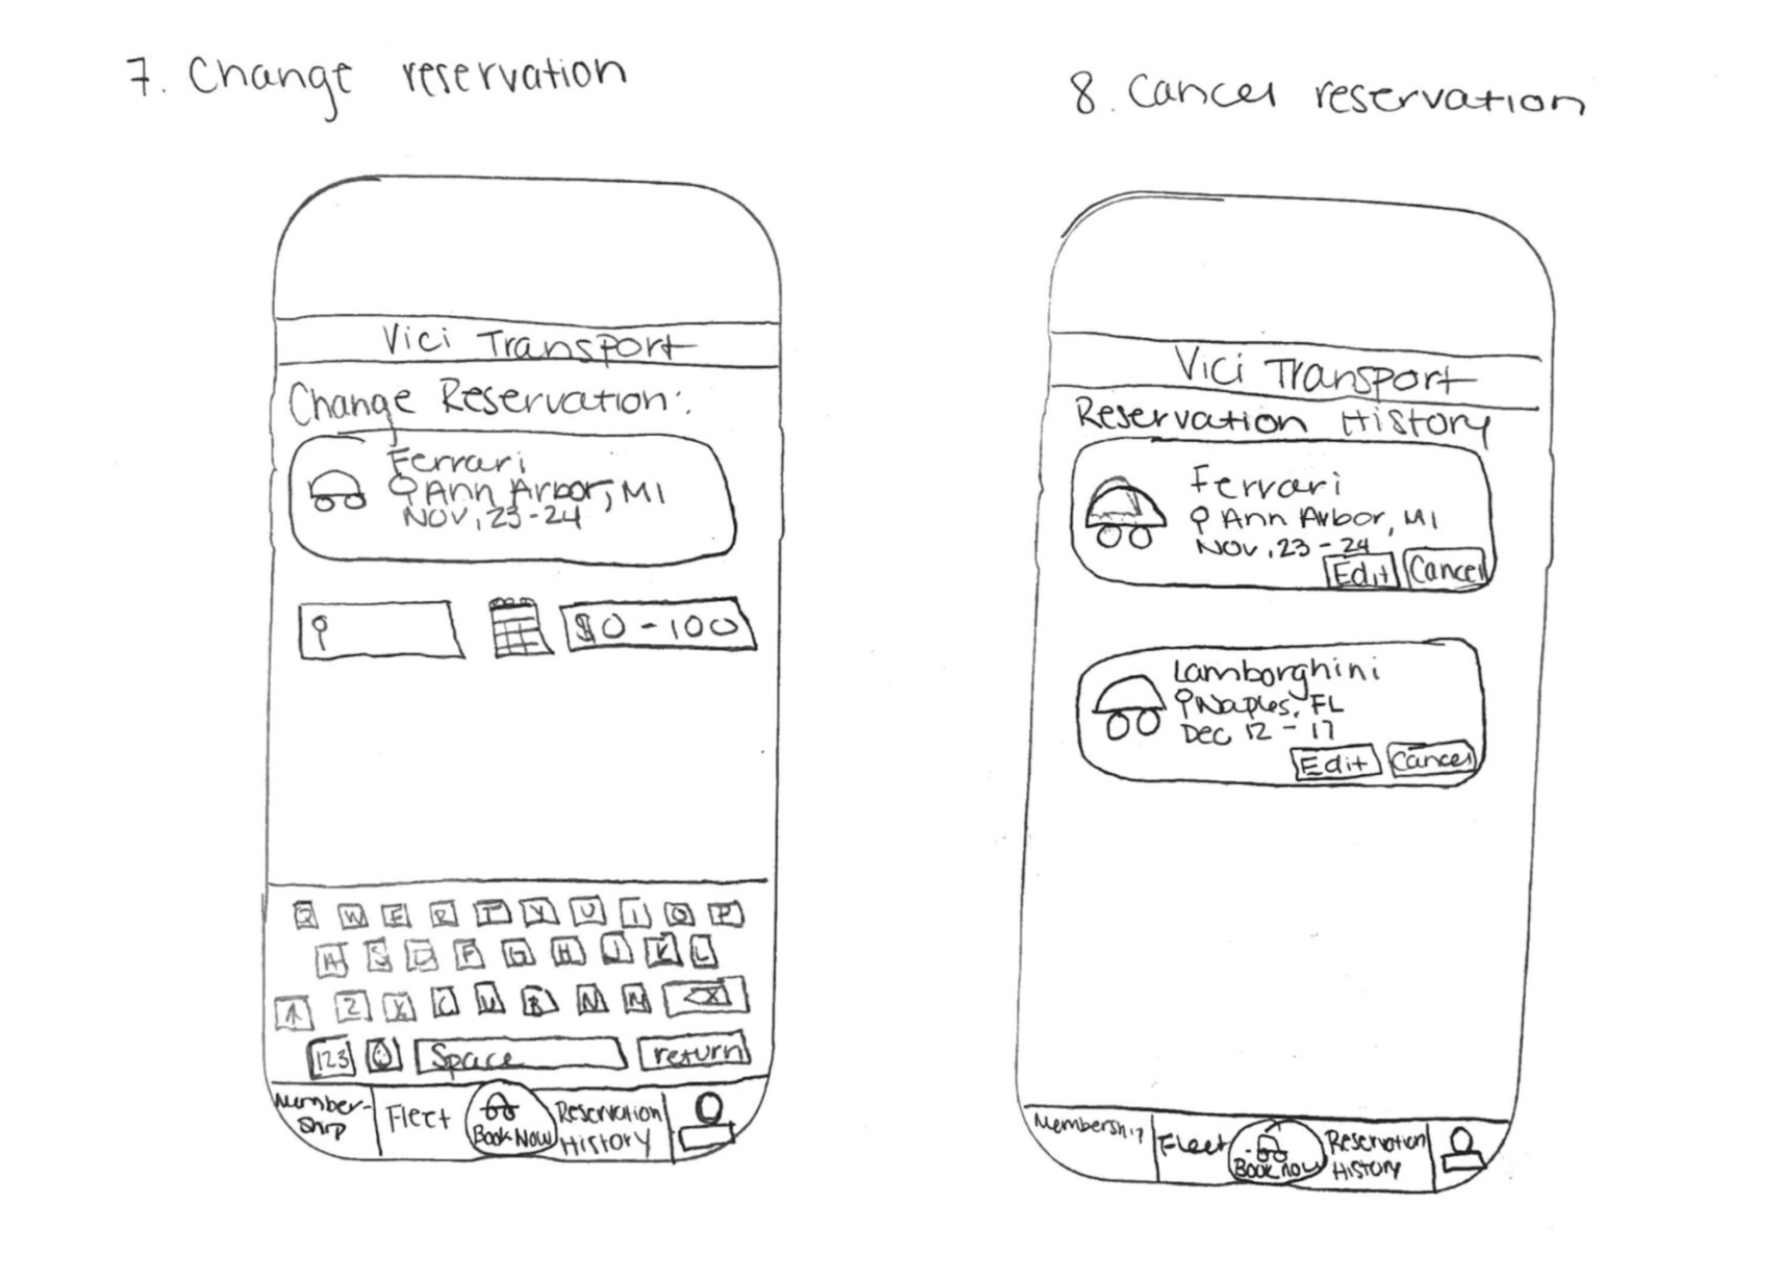 7. Change reservation
Vici Transport
Change Reservation:
Ferrari
Ann Arbor, MI
Nov, 23-24
$0-100
Q W E R T Y U I O P
A S D F G H J K L
Z X C V B N M
123 Space return
Member-
ship
Fleet
Book Now
Reservation
History
8. Cancel reservation
Vici Transport
Reservation History
Ferrari
Ann Arbor, MI
Nov, 23-24
Edit Cancel
Lamborghini
Naples, FL
Dec 12-17
Edit Cancel
Membership
Fleet
Book now
Reservation
History